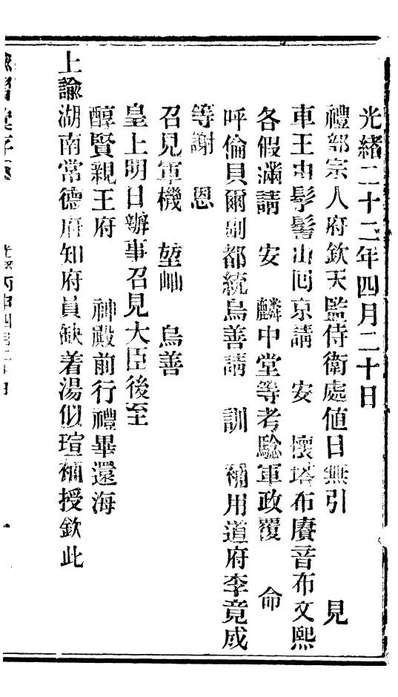 光緒二十二年四月二十日
禮部宗人府欽天監侍衛處値日無引 見
車王由髣髴山囘京請 安 懷塔布賡音布文熙
各假滿請 安 麟中堂等考驗軍政覆 命
呼倫貝爾副都統烏善請 訓 補用道府李竟成
等謝 恩
召見軍機 堃岫 烏善
皇上明日辦事召見大臣後至
醇賢親王府 神殿前行禮畢還海
上諭湖南常德府知府員缺着湯似瑄補授欽此